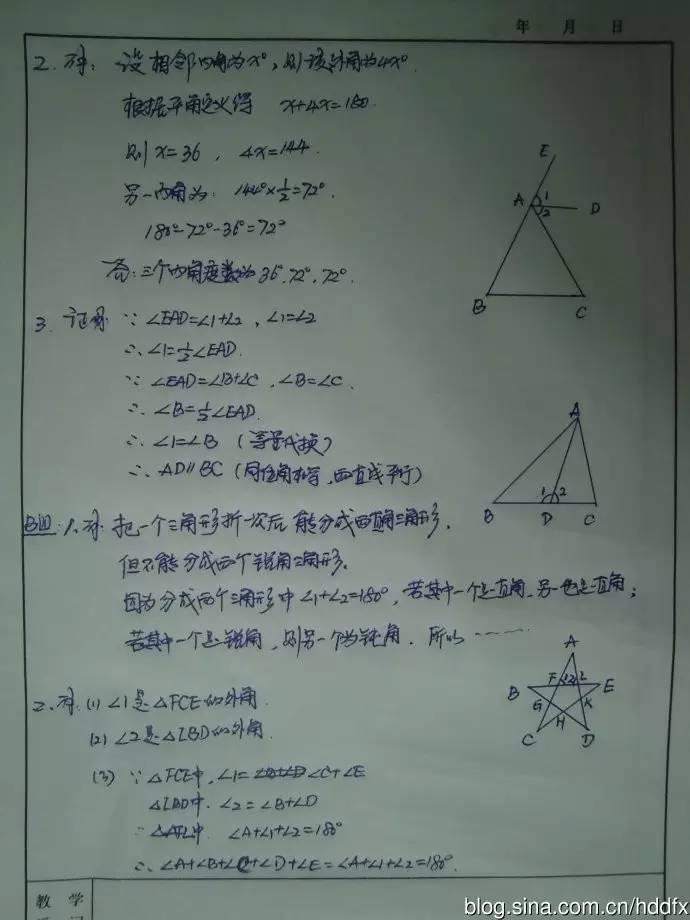 年 月 日
2. 解: 设相邻内角为x°, 则该外角为4x°.
根据平角定义得 x+4x=180.
则 x=36, 4x=144.
另一内角为: 144°×1/2=72°.
180°-72°-36°=72°
答: 三个内角度数为36°, 72°, 72°.
E
A 1
2 D
B C
3. 证明: ∵ ∠EAD=∠1+∠2, ∠1=∠2
∴ ∠1=1/2∠EAD.
∵ ∠EAD=∠B+∠C, ∠B=∠C.
∴ ∠B=1/2∠EAD.
∴ ∠1=∠B (等量代换)
∴ AD∥BC (同位角相等, 两直线平行)
A
1 2
B D C
B组: 1. 解: 把一个三角形折一次后能分成两直角三角形.
但不能分成两个锐角三角形.
因为分成两个三角形中 ∠1+∠2=180°, 若其中一个是直角, 另一也是直角;
若其中一个是锐角, 则另一个为钝角. 所以……
A
B F 1 2 L E
G K
H
C D
2. 解: (1) ∠1是△FCE的外角.
(2) ∠2是△LBD的外角.
(3) ∵ △FCE中, ∠1=∠C+∠E
△LBD中. ∠2=∠B+∠D
∵ △AFL中. ∠A+∠1+∠2=180°
∴ ∠A+∠B+∠C+∠D+∠E=∠A+∠1+∠2=180°.
教 学
blog.sina.com.cn/hddfx